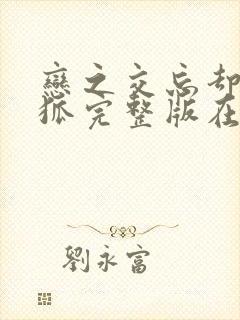 戀之交忘却
狐完整版在
劉永富